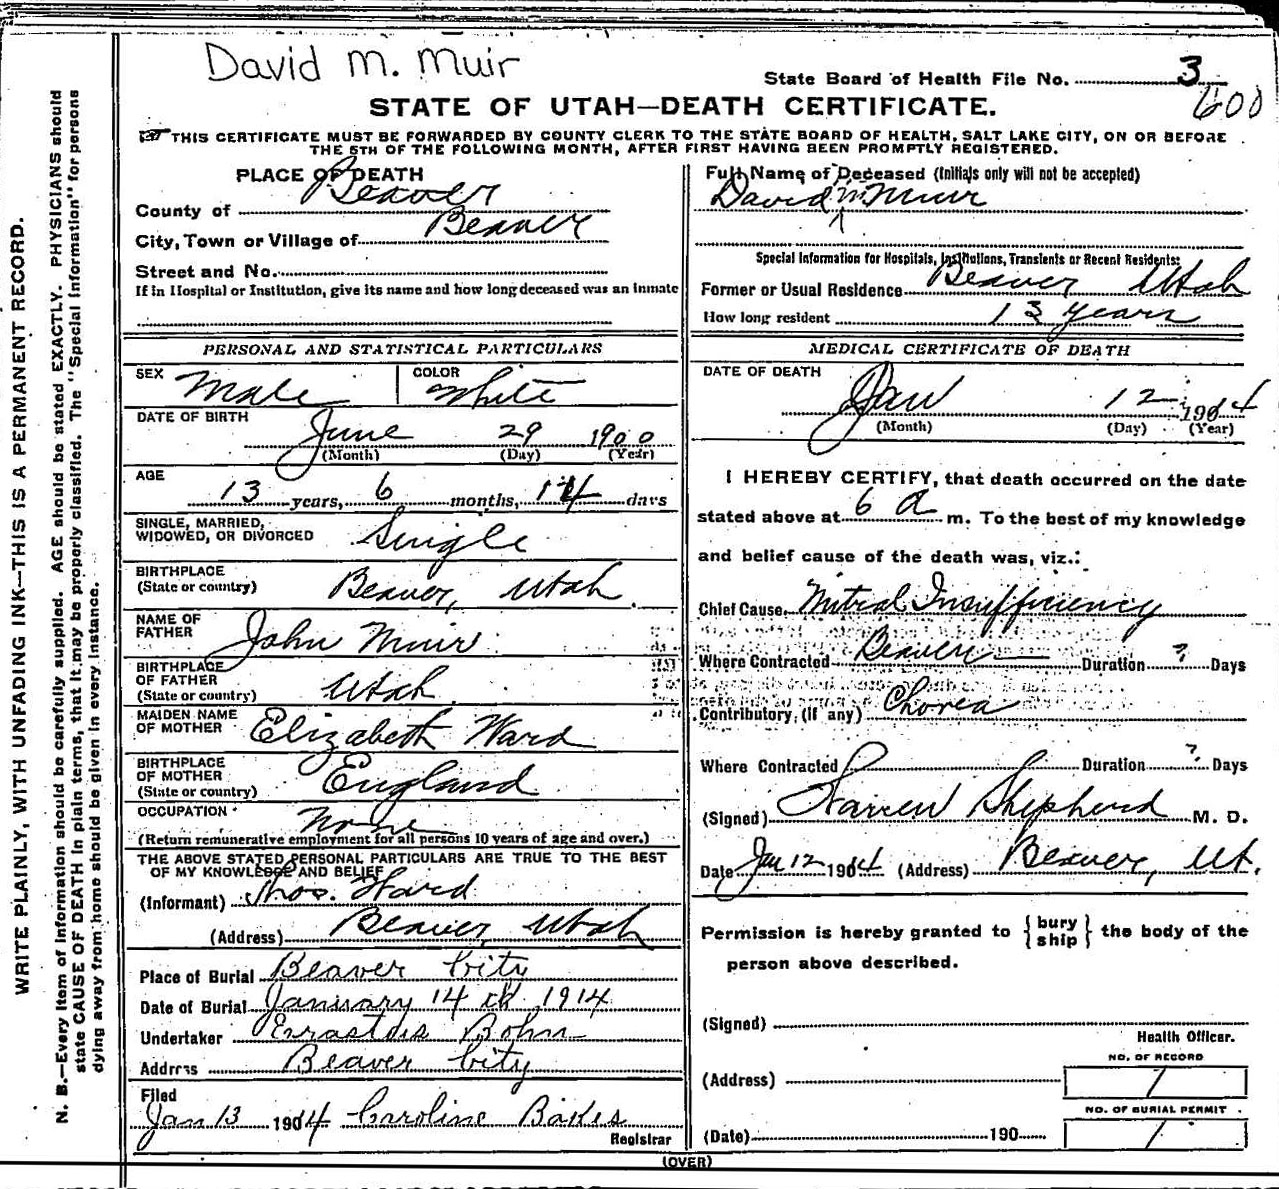 David M. Muir
State Board of Health File No. 3
600
STATE OF UTAH—DEATH CERTIFICATE.
THIS CERTIFICATE MUST BE FORWARDED BY COUNTY CLERK TO THE STATE BOARD OF HEALTH, SALT LAKE CITY, ON OR BEFORE
THE 5TH OF THE FOLLOWING MONTH, AFTER FIRST HAVING BEEN PROMPTLY REGISTERED.
WRITE PLAINLY, WITH UNFADING INK—THIS IS A PERMANENT RECORD.
N. B.—Every item of information should be carefully supplied. AGE should be stated EXACTLY. PHYSICIANS should
state CAUSE OF DEATH in plain terms, that it may be properly classified. The "Special Information" for persons
dying away from home should be given in every instance.
PLACE OF DEATH
County of Beaver
City, Town or Village of Beaver
Street and No.
If in Hospital or Institution, give its name and how long deceased was an inmate
PERSONAL AND STATISTICAL PARTICULARS
SEX Male COLOR White
DATE OF BIRTH
June 29 1900
(Month) (Day) (Year)
AGE
13 years, 6 months, 14 days
SINGLE, MARRIED,
WIDOWED, OR DIVORCED Single
BIRTHPLACE
(State or country) Beaver, Utah
NAME OF
FATHER John Muir
BIRTHPLACE
OF FATHER
(State or country) Utah
MAIDEN NAME
OF MOTHER Elizabeth Ward
BIRTHPLACE
OF MOTHER
(State or country) England
OCCUPATION None
(Return remunerative employment for all persons 10 years of age and over.)
THE ABOVE STATED PERSONAL PARTICULARS ARE TRUE TO THE BEST
OF MY KNOWLEDGE AND BELIEF
(Informant) Thos. Ward
(Address) Beaver, Utah
Place of Burial Beaver City
Date of Burial January 14th 1914
Undertaker Errastus Bohn
Address Beaver City
Filed
Jan 13 1904 Caroline Bakes
Registrar
Full Name of Deceased (Initials only will not be accepted)
David M. Muir
Special Information for Hospitals, Institutions, Transients or Recent Residents:
Former or Usual Residence Beaver Utah
How long resident 13 years
MEDICAL CERTIFICATE OF DEATH
DATE OF DEATH
Jan 12 1914
(Month) (Day) (Year)
I HEREBY CERTIFY, that death occurred on the date
stated above at 6 a m. To the best of my knowledge
and belief cause of the death was, viz.:
Chief Cause Mitral Insufficiency
Where Contracted Beaver Duration ? Days
Contributory, (if any) Chorea
Where Contracted Duration ? Days
(Signed) Warren Shepherd M. D.
Date Jan 12 1914 (Address) Beaver, Ut.
Permission is hereby granted to {bury
ship} the body of the
person above described.
(Signed)
Health Officer.
NO. OF RECORD
(Address) 1
NO. OF BURIAL PERMIT
(Date) 190 1
(OVER)